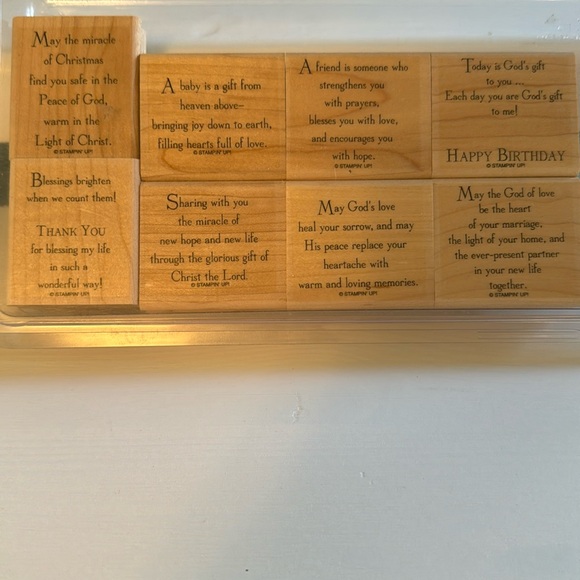 May the miracle
of Christmas
find you safe in the
Peace of God,
warm in the
Light of Christ.
© STAMPIN' UP!
A baby is a gift from
heaven above–
bringing joy down to earth,
filling hearts full of love.
© STAMPIN' UP!
A friend is someone who
strengthens you
with prayers,
blesses you with love,
and encourages you
with hope.
© STAMPIN' UP!
Today is God's gift
to you ...
Each day you are God's gift
to me!
HAPPY BIRTHDAY
© STAMPIN' UP!
Blessings brighten
when we count them!
THANK YOU
for blessing my life
in such a
wonderful way!
© STAMPIN' UP!
Sharing with you
the miracle of
new hope and new life
through the glorious gift of
Christ the Lord.
© STAMPIN' UP!
May God's love
heal your sorrow, and may
His peace replace your
heartache with
warm and loving memories.
© STAMPIN' UP!
May the God of love
be the heart
of your marriage,
the light of your home, and
the ever-present partner
in your new life
together.
© STAMPIN' UP!